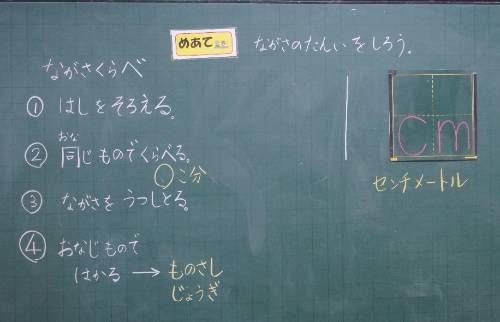 めあて
ながさのたんいをしろう。
ながさくらべ
① はしをそろえる。
② 同じものでくらべる。
おな
○こ分
③ ながさをうつしとる。
④ おなじもので
はかる → ものさし
じょうぎ
cm
センチメートル